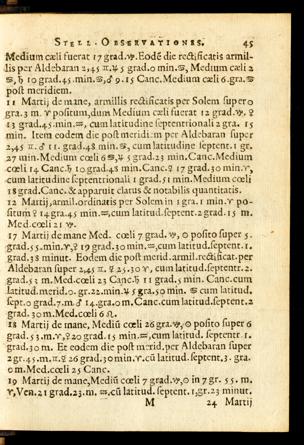 STELL. OBSERVATIONES. 45
Medium cæli fuerat 17 grad.♑. Eodē die rectificatis armil-
lis per Aldebaran 2,45 ♊.♃ 5 grad.0 min.♋, Medium cæli 2
♋, ♄ 10 grad.45.min.♋,♂ 9.15 Canc.Medium cæli 6.gra.♋
post meridiem.
11 Martij de mane, armillis rectificatis per Solem super 0
gra.3 m. ♈ positum,dum Medium cæli fuerat 12 grad.♑. ♀
13 grad.45.min.♒, cum latitudine septentrionali 2 gra. 15
min. Item eodem die post meridiem per Aldebaran super
2,45 ♊.♂ 11. grad.48 min.♋, cum latitudine septent.1 gr.
27 min.Medium cœli 6 ♋,♃ 5 grad.23 min.Canc.Medium
cœli 14 Canc.♄ 10 grad.48 min.Canc.♀ 17 grad.30 min.♈,
cum latitudine septentrionali 1 grad.1 min.Medium cœli
18 grad.Canc.& apparuit clarus & notabilis quantitatis.
12 Martij,armil.ordinatis per Solem in 1 gra.1 min.♈ po-
situm ♀ 14.gra.45 min.♒,cum latitud.septent.2 grad.15 m.
Med.cœli 21 ♑.
17 Martij de mane Med. cœli 7 grad.♑, ☉ posito super 5.
grad.55.min.♈,♀ 19 grad.30 min.♒,cum latitud.septent.1.
grad.38 minut. Eodem die post merid.armil.rectificat.per
Aldebaran super 2,45 ♊. ☿ 25.30 ♈, cum latitud.septentr.2.
grad.53 m.Med.cœli 23 Canc.♄ 11 grad.5 min.Canc.cum
latitud.merid.0. gr.22.min.♃ 5 gra.50 min. ♋ cum latitud.
sept.0 grad.7.m.♂ 14.gra.0 m.Canc.cum latitud.septent.2
grad.30 m.Med.cœli 6 ♌.
18 Martij de mane, Mediū cœli 26 gra.♑,☉ posito super 6
grad.53.m.♈,♀20 grad.15 min.♒,cum latitud. septent. 1.
grad.30 m. Et eodem die post merid.per Aldebaran super
2 gr.45.m.♊.☿ 26 grad.30 min.♈.cū latitud.septent.3. gra.
0 m.Med.cœli 25 Canc.
19 Martij de mane,Mediū cœli 7 grad.♑,☉ in 7 gr. 55. m.
♈,Ven.21 grad.23.m. ♒.cū latitud.septent.1,gr.23 minut.
M 24 Martij